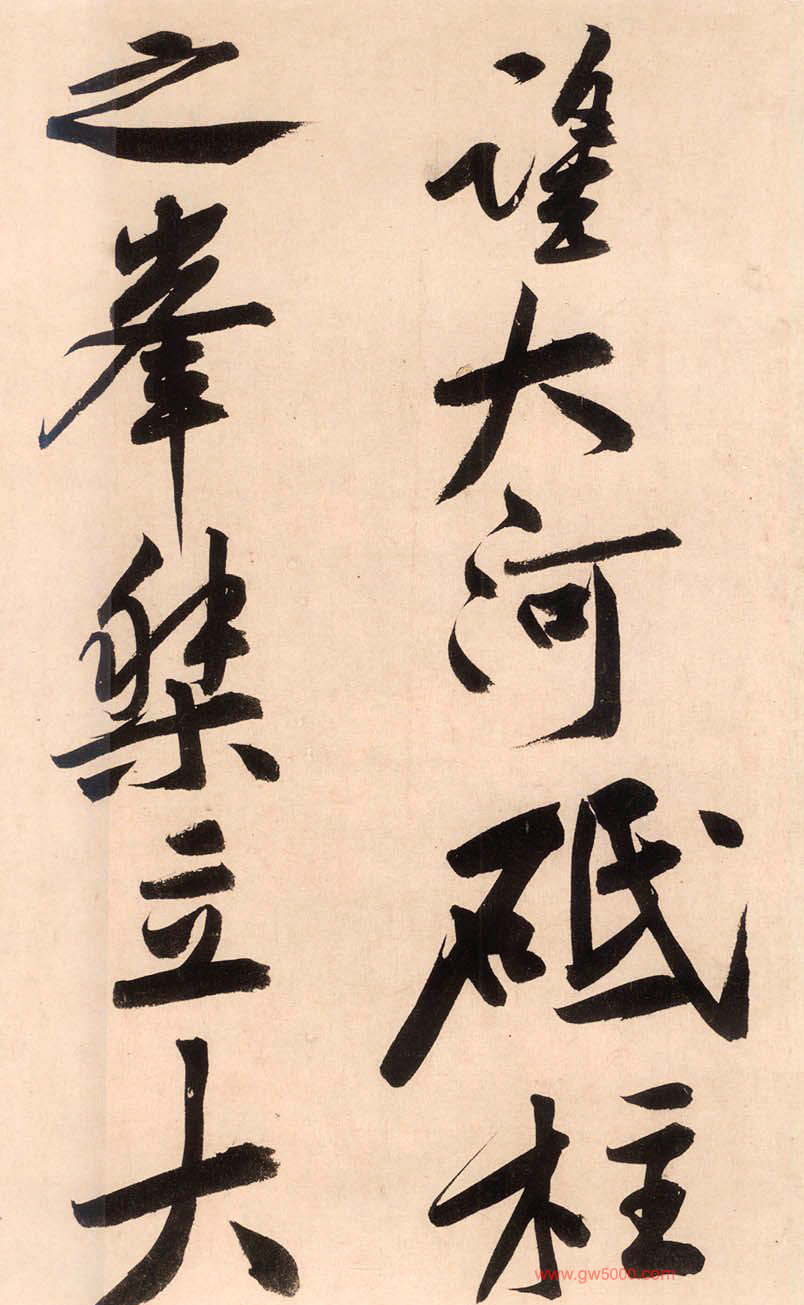 望大河砥柱
之峯桀立大
www.gw5000.com